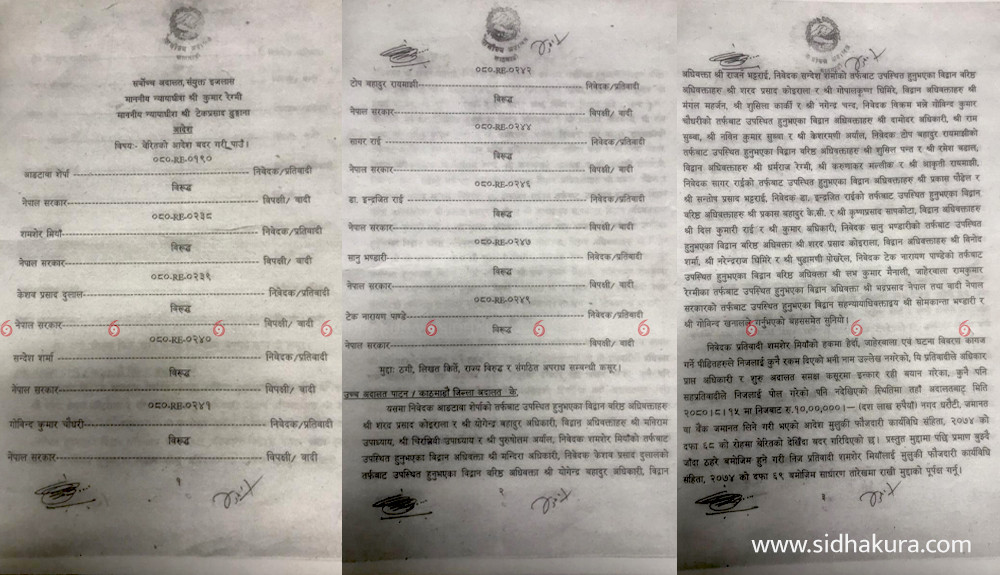 सर्वोच्च अदालत, संयुक्त इजलास
माननीय न्यायाधीश श्री कुमार रेग्मी
माननीय न्यायाधीश श्री टेकप्रसाद ढुङ्गाना
आदेश
विषयः- बेरितको आदेश बदर गरी पाउँ।
०८०-RE-०१९०
आङटावा शेर्पा ---------- निवेदक/प्रतिवादी
विरूद्ध
नेपाल सरकार ---------- विपक्षी/ वादी
०८०-RE-०२३८
शमशेर मियाँ ---------- निवेदक/प्रतिवादी
विरूद्ध
नेपाल सरकार ---------- विपक्षी/ वादी
०८०-RE-०२३९
केशव प्रसाद दुलाल ---------- निवेदक/प्रतिवादी
विरूद्ध
नेपाल सरकार ---------- विपक्षी/ वादी
०८०-RE-०२४०
सन्देश शर्मा ---------- निवेदक/प्रतिवादी
विरूद्ध
नेपाल सरकार ---------- विपक्षी/ वादी
०८०-RE-०२४१
गोविन्द कुमार चौधरी ---------- निवेदक/प्रतिवादी
विरूद्ध
नेपाल सरकार ---------- विपक्षी/ वादी
१
०८०-RE-०२४२
टोप बहादुर रायमाझी ---------- निवेदक/प्रतिवादी
विरूद्ध
नेपाल सरकार ---------- विपक्षी/ वादी
०८०-RE-०२४४
सागर राई ---------- निवेदक/प्रतिवादी
विरूद्ध
नेपाल सरकार ---------- विपक्षी/ वादी
०८०-RE-०२४६
डा. इन्द्रजित राई ---------- निवेदक/प्रतिवादी
विरूद्ध
नेपाल सरकार ---------- विपक्षी/ वादी
०८०-RE-०२४७
सानु भण्डारी ---------- निवेदक/प्रतिवादी
विरूद्ध
नेपाल सरकार ---------- विपक्षी/ वादी
०८०-RE-०२४९
टेक नारायण पाण्डे ---------- निवेदक/प्रतिवादी
विरूद्ध
नेपाल सरकार ---------- विपक्षी/ वादी
मुद्दाः ठगी, लिखत किर्ते, राज्य विरुद्ध र संगठित अपराध सम्बन्धी कसूर।
उच्च अदालत पाटन / काठमाडौं जिल्ला अदालत के,
यसमा निवेदक आङटावा शेर्पाको तर्फबाट उपस्थित हुनुभएका विद्वान वरिष्ठ अधिवक्ताहरू
श्री शरद प्रसाद कोइराला र श्री योगेन्द्र बहादुर अधिकारी, विद्वान अधिवक्ताहरू श्री मतिराम
उपाध्याय, श्री चिरञ्जिवी उपाध्याय र श्री पुरुषोत्तम अर्याल, निवेदक शमशेर मियाँको तर्फबाट
उपस्थित हुनुभएका विद्वान अधिवक्ता श्री मन्दिरा अधिकारी, निवेदक केशव प्रसाद दुलालको
तर्फबाट उपस्थित हुनुभएका विद्वान वरिष्ठ अधिवक्ता श्री योगेन्द्र बहादुर अधिकारी, विद्वान
२
अधिवक्ता श्री राजन भट्टराई, निवेदक सन्देश शर्माको तर्फबाट उपस्थित हुनुभएका विद्वान वरिष्ठ
अधिवक्ताहरू श्री शरद प्रसाद कोइराला र श्री गोपालकृष्ण घिमिरे, विद्वान अधिवक्ताहरू श्री
मंगल महर्जन, श्री शुसिला कार्की र श्री नगेन्द्र पन्त, निवेदक विकम भन्ने गोविन्द कुमार
चौधरीको तर्फबाट उपस्थित हुनुभएका विद्वान अधिवक्ताहरू श्री दामोदर अधिकारी, श्री राम
सुब्बा, श्री नविन कुमार सुब्बा र श्री केशरमणी अर्याल, निवेदक टोप बहादुर रायमाझीको
तर्फबाट उपस्थित हुनुभएका विद्वान वरिष्ठ अधिवक्ताहरू श्री शुसिल पन्त र श्री रमेश बडाल,
विद्वान अधिवक्ताहरू श्री धर्मराज रेग्मी, श्री करुणाकर मल्लीक र श्री आकृती रायमाझी,
निवेदक सागर राईको तर्फबाट उपस्थित हुनुभएका विद्वान अधिवक्ताहरू श्री प्रकास पौडेल र
श्री सन्तोष प्रसाद भट्टराई, निवेदक डा. इन्द्रजित राईको तर्फबाट उपस्थित हुनुभएका विद्वान
वरिष्ठ अधिवक्ताहरू श्री प्रकास बहादुर के.सी. र श्री कृष्णप्रसाद सापकोटा, विद्वान अधिवक्ताहरू
श्री दिल कुमारी राई र श्री कुमार अधिकारी, निवेदक सानु भण्डारीको तर्फबाट उपस्थित
हुनुभएका विद्वान वरिष्ठ अधिवक्ता श्री शरद प्रसाद कोइराला, विद्वान अधिवक्ताहरू श्री विनोद
शर्मा, श्री नरेन्द्रराज घिमिरे र श्री चुडामणी पोखरेल, निवेदक टेक नारायण पाण्डेको तर्फबाट
उपस्थित हुनुभएका विद्वान वरिष्ठ अधिवक्ता श्री सभ कुमार मैनाली, जाहेरवाला रामकुमार
रेग्मीका तर्फबाट उपस्थित हुनुभएका विद्वान अधिवक्ता श्री भद्रप्रसाद नेपाल तथा वादी नेपाल
सरकारको तर्फबाट उपस्थित हुनुभएका विद्वान सहन्यायाधिवक्ताद्वय श्री सोमकान्ता भण्डारी र
श्री गोविन्द खनालले गर्नुभएको बहससमेत सुनियो।
निवेदक प्रतिवादी शमशेर मियाँको हकमा हेर्दा, जाहेरवाला एवं घटना विवरण कागज
गर्ने पीडितहरुले निजलाई कुनै रकम दिएको भनी नाम उल्लेख नगरेको, यि प्रतिवादीले अधिकार
प्राप्त अधिकारी र शुरु अदालत समक्ष कसूरमा इन्कार रही बयान गरेका, कुनै पनि
सहप्रतिवादीले निजलाई पोल गरेको पनि नदेखिएको स्थितिमा तहाँ अदालतबाट मिति
२०८०।८।१५ मा निजबाट रु.१०,००,०००।– (दश लाख रुपैयाँ) नगद धरौटी, जमानत
वा बैंक जमानत लिने गरी भएको आदेश मुलुकी फौजदारी कार्यविधि संहिता, २०७४ को
दफा ६८ को रोहमा बेरितको देखिँदा बदर गरिदिएको छ। प्रस्तुत मुद्दामा पछि प्रमाण बुझ्दै
जाँदा ठहरे बमोजिम हुने गरी निज प्रतिवादी शमशेर मियाँलाई मुलुकी फौजदारी कार्यविधि
संहिता, २०७४ को दफा ६९ बमोजिम साधारण तारेखमा राखी मुद्दाको पूर्पक्ष गर्नू।
३
www.sidhakura.com